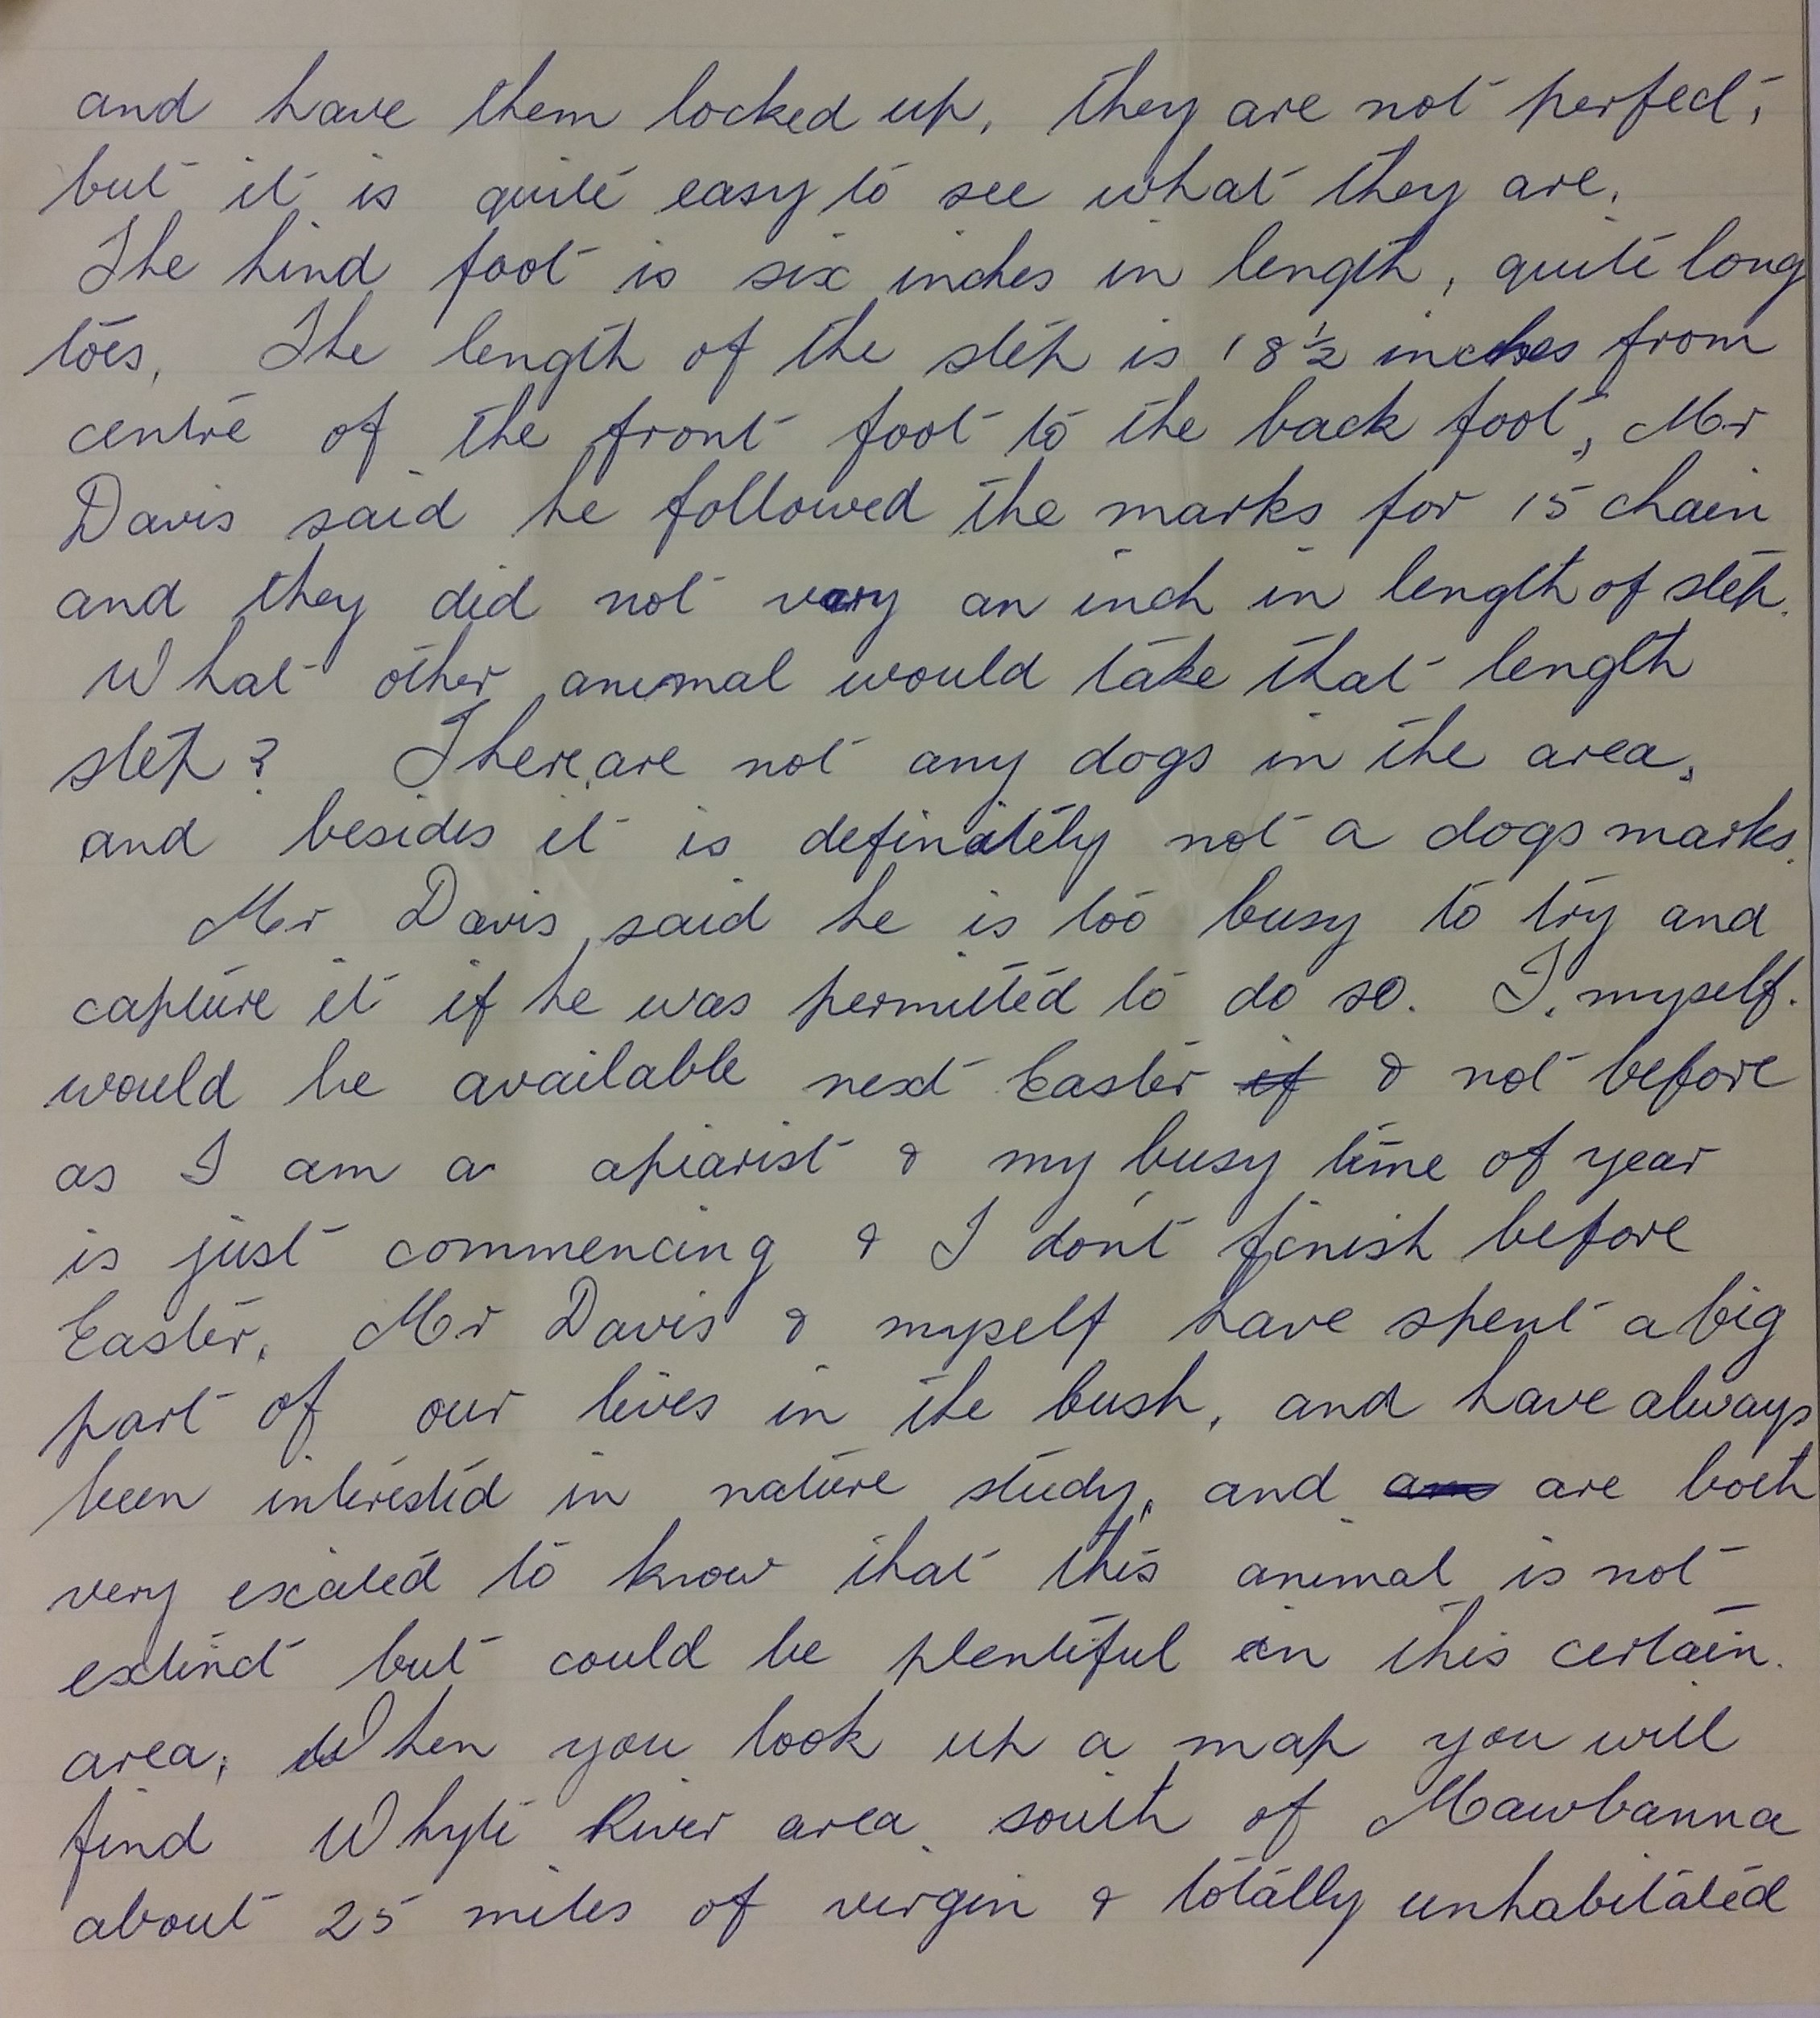 and have them locked up, they are not perfect,
but it is quite easy to see what they are.
The hind foot is six inches in length, quite long
toes. The length of the step is 18½ inches from
centre of the front foot to the back foot, Mr
Davis said he followed the marks for 15 chain
and they did not vary an inch in length of step.
What other animal would take that length
step? There are not any dogs in the area,
and besides it is definately not a dogs marks.
Mr Davis said he is too busy to try and
capture it if he was permitted to do so. I, myself.
would be available next Easter if & not before
as I am a apiarist & my busy time of year
is just commencing & I don't finish before
Easter. Mr Davis & myself have spent a big
part of our lives in the bush, and have always
been interested in nature study, and are both
very excited to know that this animal is not
extinct but could be plentiful in this certain.
area, When you look up a map you will
find Whyte River area south of Mawbanna
about 25 miles of virgin & totally unhabitated